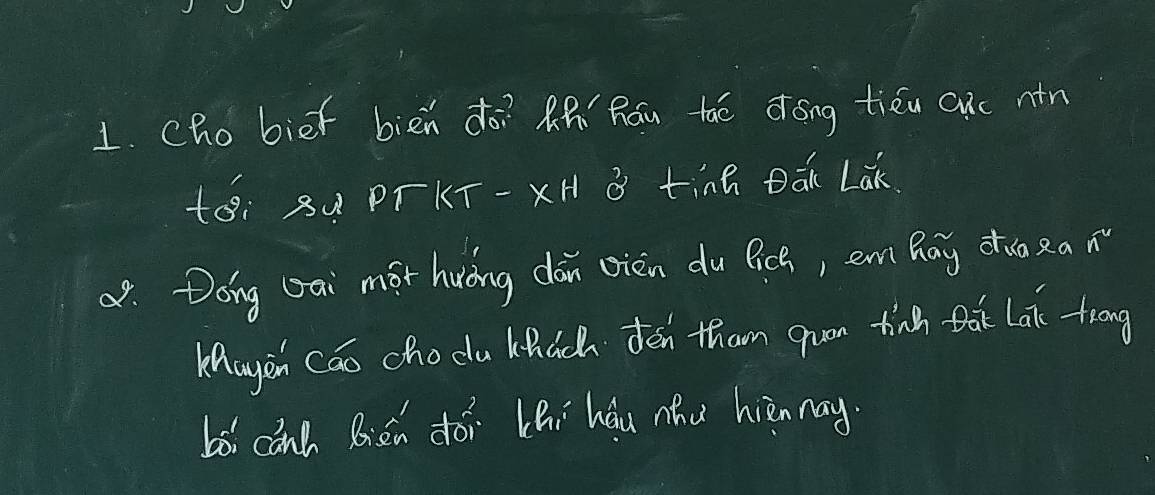 1. Cho biết biến đổi khí hậu tác động tiêu cực ntn
tới sự PTKT - XH ở tỉnh Đắk Lắk.
2. Đóng vai một hướng dẫn viên du lịch, em hãy đưa ra n~
khuyến cáo cho du khách đến tham quan tỉnh Đắk Lắk trong
bối cảnh biến đổi khí hậu như hiện nay.